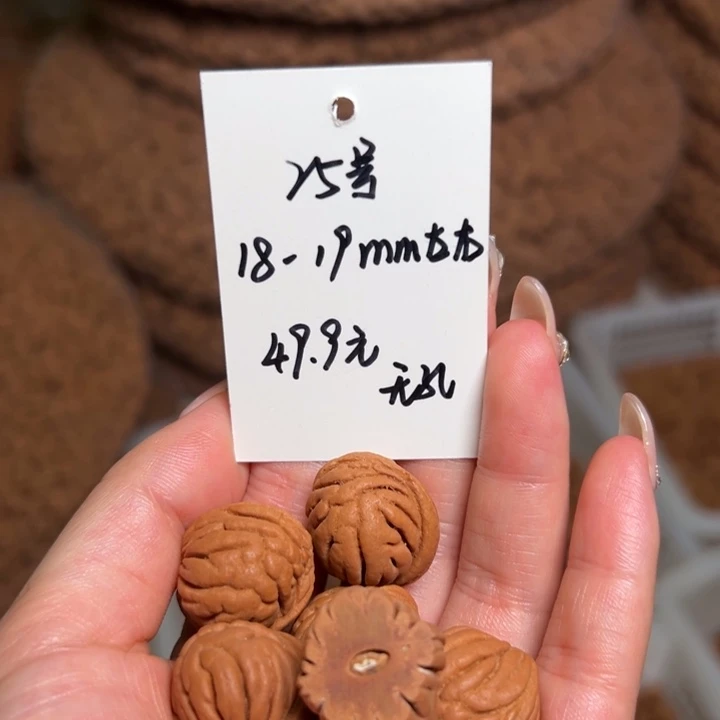 25号
18-19mm左右
49.9元
无孔